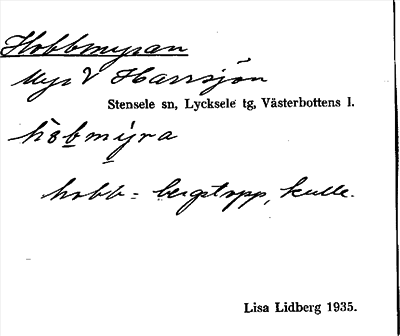 Hobbmyran
Myr V Harrsjön
Stensele sn, Lycksele tg, Västerbottens l.
hòbmỳra
hobb = bergstopp, kulle.
Lisa Lidberg 1935.